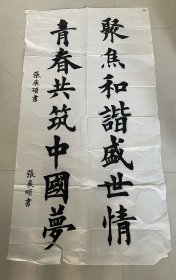 聚焦和諧盛世情
青春共筑中國夢
張展碩書
張展碩書